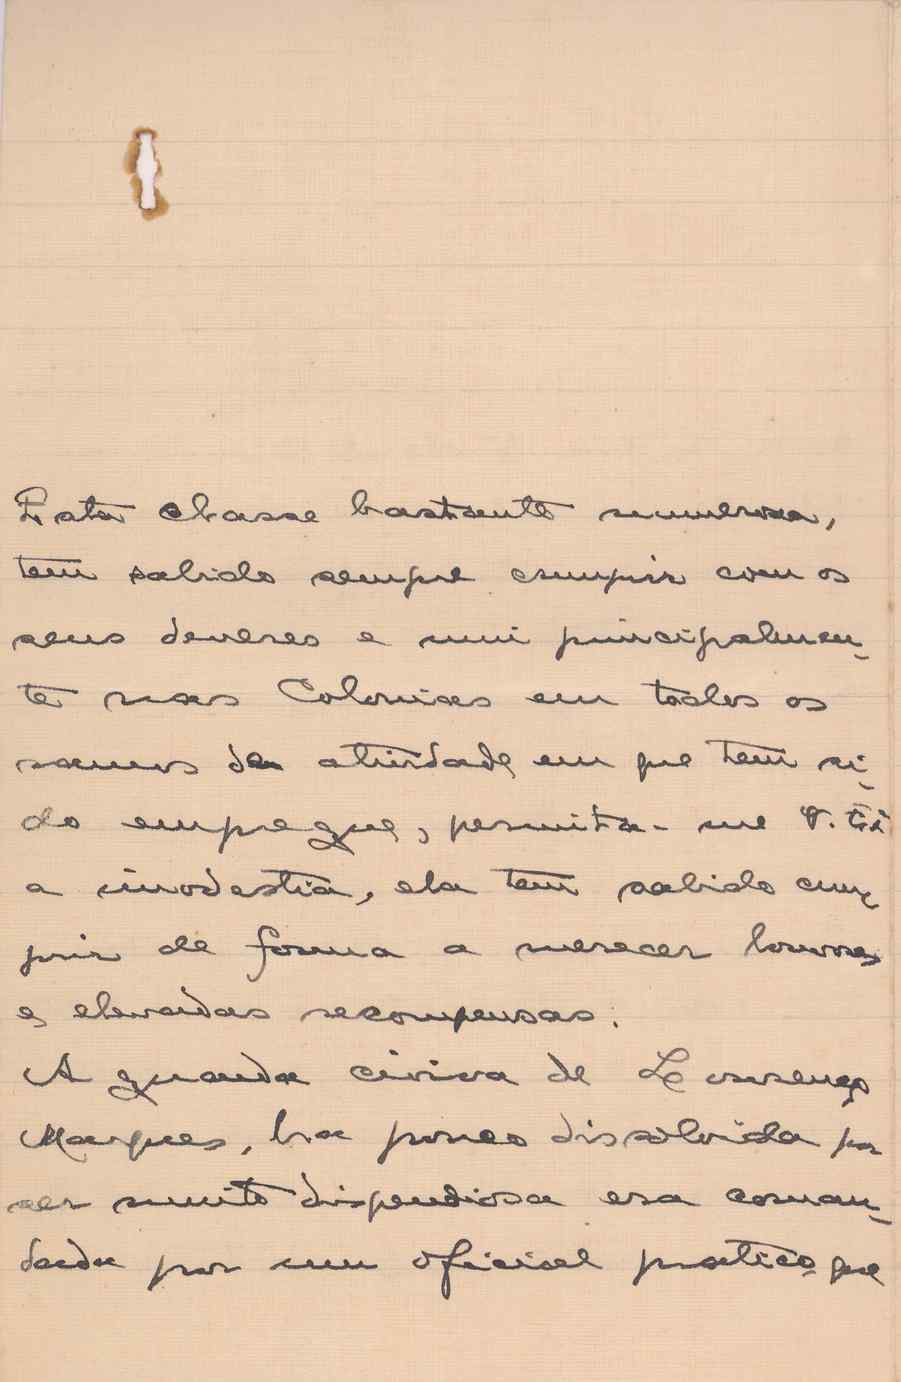 Esta classe bastante numerosa,
tem sabido sempre cumprir com os
seus deveres e mui principalmen-
te nas Colonias em todos os
ramos de atividade em que tem si-
do empregue, permita-me V. Exª
a imodestia, ela tem sabido cum
prir de forma a merecer louvores
e elevadas recompensas.
A guarda civica de Lourenço
Marques, ha pouco dissolvida por
ser muito dispendiosa era coman-
dada por um oficial pratico que